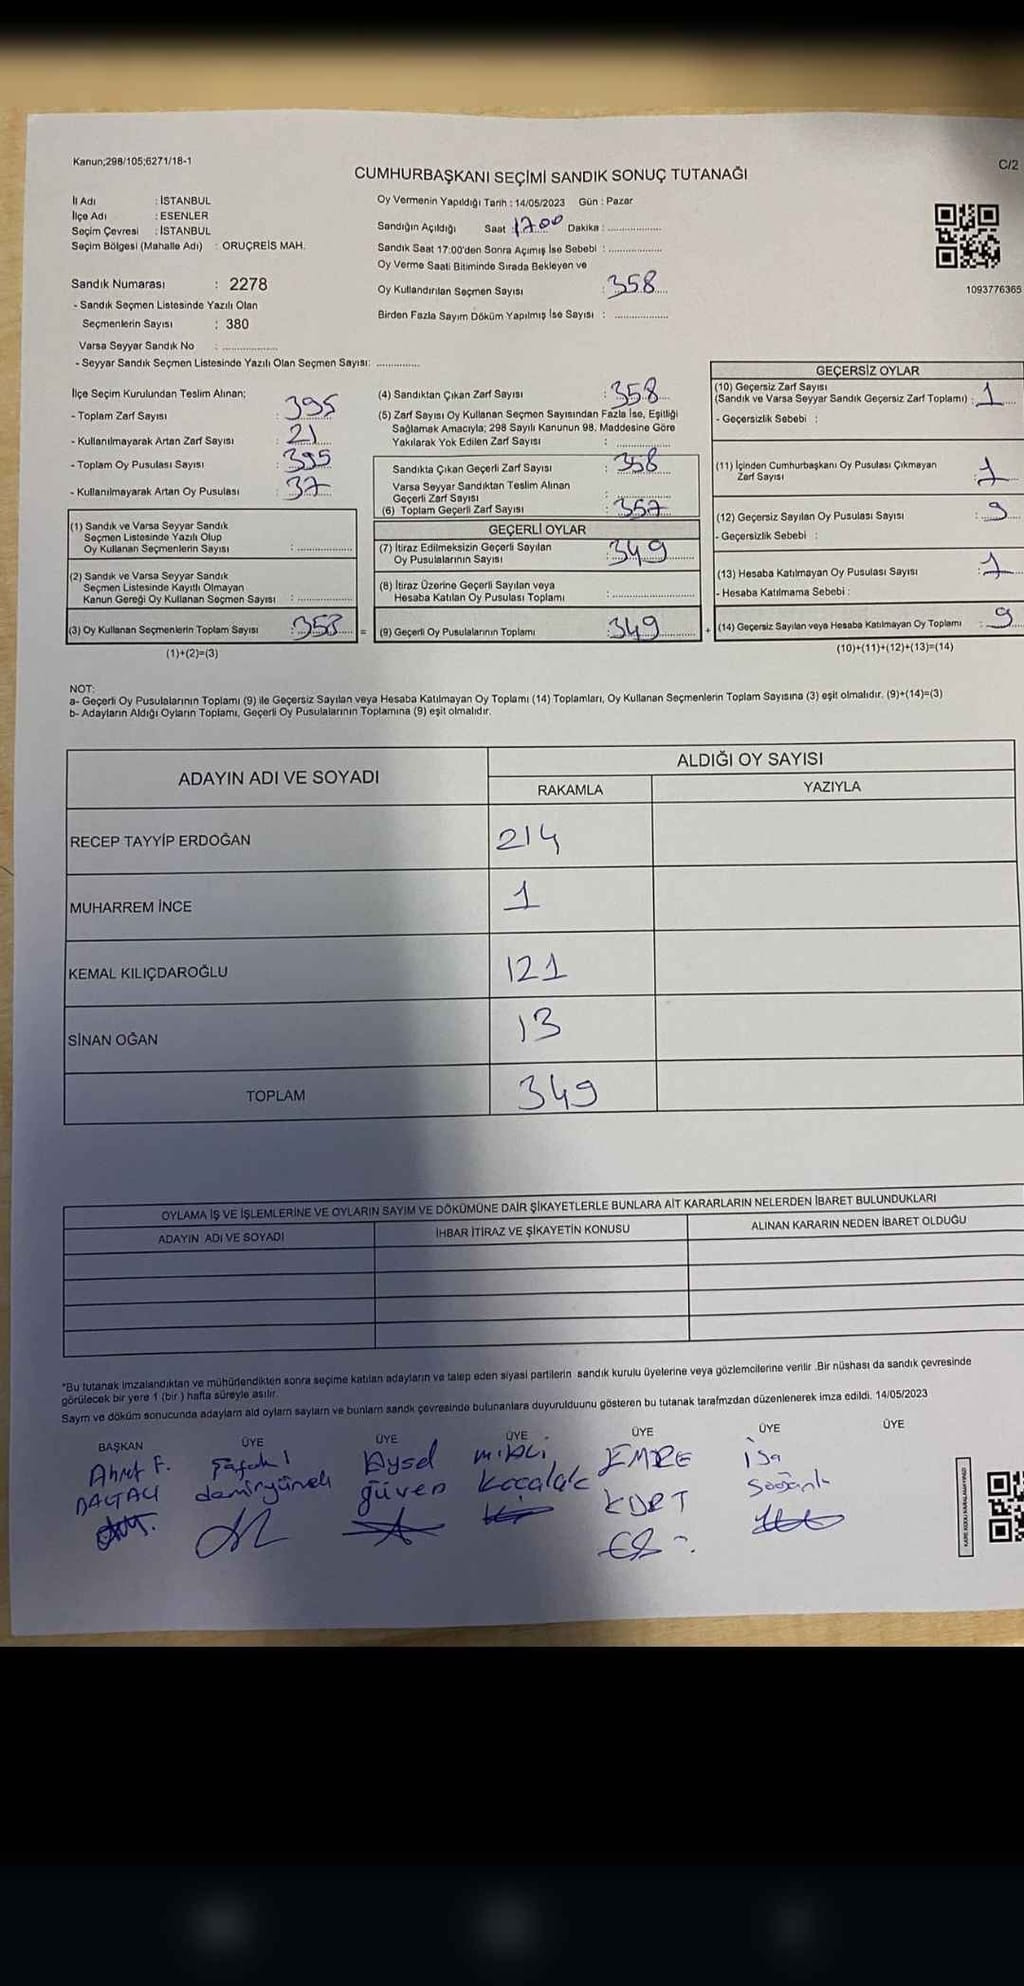 Kanun;298/105;6271/18-1
C/2
CUMHURBAŞKANI SEÇİMİ SANDIK SONUÇ TUTANAĞI
İl Adı : İSTANBUL
İlçe Adı : ESENLER
Seçim Çevresi : İSTANBUL
Seçim Bölgesi (Mahalle Adı) : ORUÇREİS MAH.
Sandık Numarası : 2278
- Sandık Seçmen Listesinde Yazılı Olan
Seçmenlerin Sayısı : 380
Varsa Seyyar Sandık No : ..............
- Seyyar Sandık Seçmen Listesinde Yazılı Olan Seçmen Sayısı: ..............
Oy Vermenin Yapıldığı Tarih : 14/05/2023 Gün : Pazar
Sandığın Açıldığı Saat : 17.00 Dakika : ..............
Sandık Saat 17:00'den Sonra Açımış İse Sebebi : ..............
Oy Verme Saati Bitiminde Sırada Bekleyen ve
Oy Kullandırılan Seçmen Sayısı : 358
Birden Fazla Sayım Döküm Yapılmış İse Sayısı : ..............
1093776365
İlçe Seçim Kurulundan Teslim Alınan;
- Toplam Zarf Sayısı : 395
- Kullanılmayarak Artan Zarf Sayısı : 21
- Toplam Oy Pusulası Sayısı : 395
- Kullanılmayarak Artan Oy Pusulası : 37
(1) Sandık ve Varsa Seyyar Sandık
Seçmen Listesinde Yazılı Olup
Oy Kullanan Seçmenlerin Sayısı : ..............
(2) Sandık ve Varsa Seyyar Sandık
Seçmen Listesinde Kayıtlı Olmayan
Kanun Gereği Oy Kullanan Seçmen Sayısı : ..............
(3) Oy Kullanan Seçmenlerin Toplam Sayısı : 358 =
(1)+(2)=(3)
(4) Sandıktan Çıkan Zarf Sayısı : 358
(5) Zarf Sayısı Oy Kullanan Seçmen Sayısından Fazla İse, Eşitliği
Sağlamak Amacıyla; 298 Sayılı Kanunun 98. Maddesine Göre
Yakılarak Yok Edilen Zarf Sayısı : ..............
Sandıkta Çıkan Geçerli Zarf Sayısı : 358
Varsa Seyyar Sandıktan Teslim Alınan
Geçerli Zarf Sayısı : ..............
(6) Toplam Geçerli Zarf Sayısı : 357
GEÇERLİ OYLAR
(7) İtiraz Edilmeksizin Geçerli Sayılan
Oy Pusulalarının Sayısı : 349
(8) İtiraz Üzerine Geçerli Sayılan veya
Hesaba Katılan Oy Pusulası Toplamı : ..............
(9) Geçerli Oy Pusulalarının Toplamı : 349 +
GEÇERSİZ OYLAR
(10) Geçersiz Zarf Sayısı
(Sandık ve Varsa Seyyar Sandık Geçersiz Zarf Toplamı) : 1
- Geçersizlik Sebebi :
(11) İçinden Cumhurbaşkanı Oy Pusulası Çıkmayan
Zarf Sayısı : 1
(12) Geçersiz Sayılan Oy Pusulası Sayısı : 9
- Geçersizlik Sebebi :
(13) Hesaba Katılmayan Oy Pusulası Sayısı : 1
- Hesaba Katılmama Sebebi :
(14) Geçersiz Sayılan veya Hesaba Katılmayan Oy Toplamı : 9
(10)+(11)+(12)+(13)=(14)
NOT:
a- Geçerli Oy Pusulalarının Toplamı (9) ile Geçersiz Sayılan veya Hesaba Katılmayan Oy Toplamı (14) Toplamları, Oy Kullanan Seçmenlerin Toplam Sayısına (3) eşit olmalıdır. (9)+(14)=(3)
b- Adayların Aldığı Oyların Toplamı, Geçerli Oy Pusulalarının Toplamına (9) eşit olmalıdır.
ADAYIN ADI VE SOYADI
ALDIĞI OY SAYISI
RAKAMLA YAZIYLA
RECEP TAYYİP ERDOĞAN 214
MUHARREM İNCE 1
KEMAL KILIÇDAROĞLU 121
SİNAN OĞAN 13
TOPLAM 349
OYLAMA İŞ VE İŞLEMLERİNE VE OYLARIN SAYIM VE DÖKÜMÜNE DAİR ŞİKAYETLERLE BUNLARA AİT KARARLARIN NELERDEN İBARET BULUNDUKLARI
ADAYIN ADI VE SOYADI İHBAR İTİRAZ VE ŞİKAYETİN KONUSU ALINAN KARARIN NEDEN İBARET OLDUĞU
*Bu tutanak imzalandıktan ve mühürlendikten sonra seçime katılan adayların ve talep eden siyasi partilerin sandık kurulu üyelerine veya gözlemcilerine verilir .Bir nüshası da sandık çevresinde
görülecek bir yere 1 (bir ) hafta süreyle asılır.
Sayım ve döküm sonucunda adayların ald oyların sayların ve bunların sandk çevresinde bulunanlara duyurulduunu gösteren bu tutanak tarafmzdan düzenlenerek imza edildi. 14/05/2023
BAŞKAN ÜYE ÜYE ÜYE ÜYE ÜYE ÜYE
Ahmet F. Aysel EMRE isa
güven KURT
KARE KODU KARALAMAYINIZ!